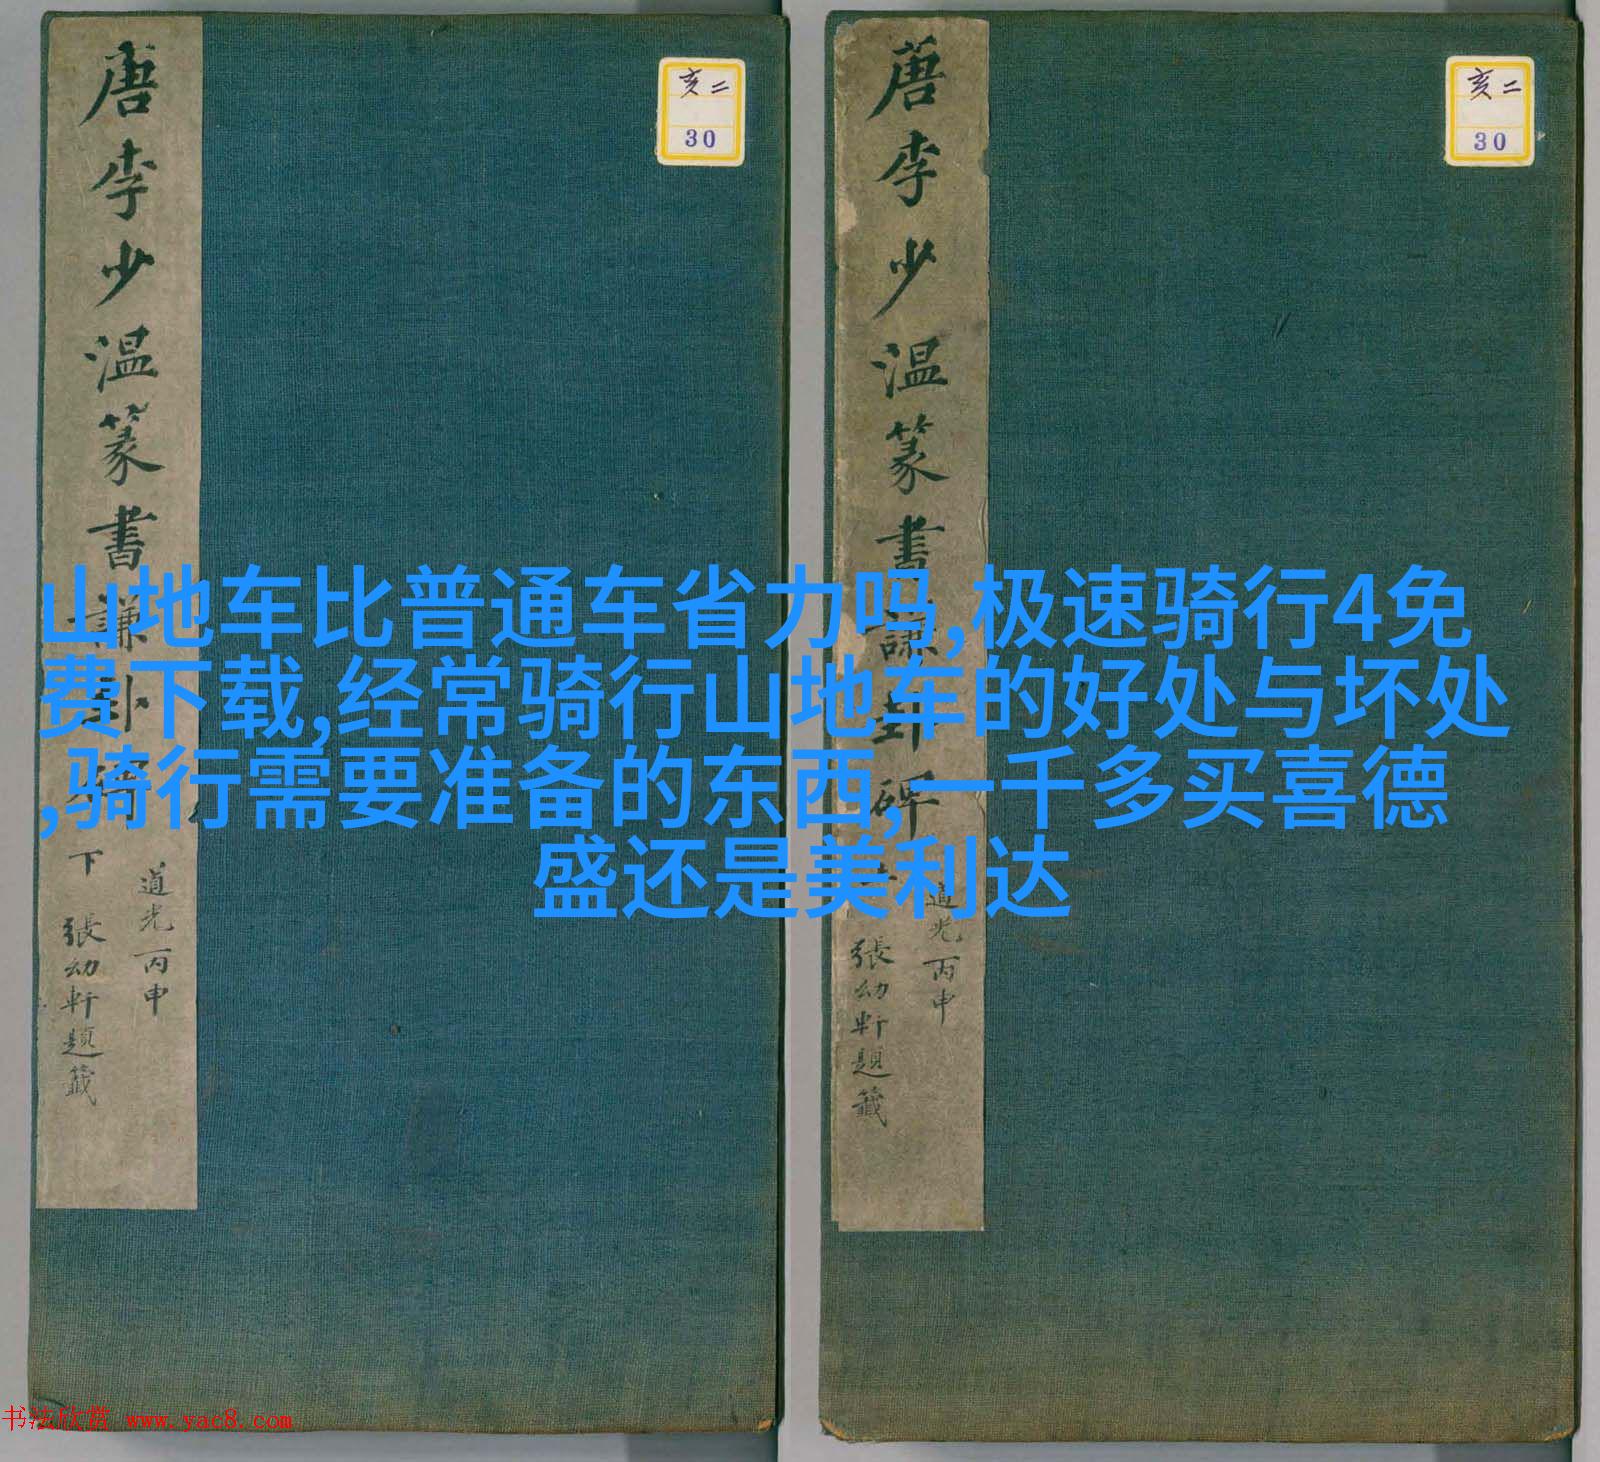 唐李少温篆書謙卦碑 下
道光丙申
張幼軒題籤
亥二
30
唐李少温篆書謙卦碑 上
道光丙申
張幼軒題籤
亥二
30
山地车比普通车省力吗,极速骑行4免
费下载,经常骑行山地车的好处与坏处
,骑行需要准备的东西,一千多买喜德
盛还是美利达
书法欣赏 www.yac8.com